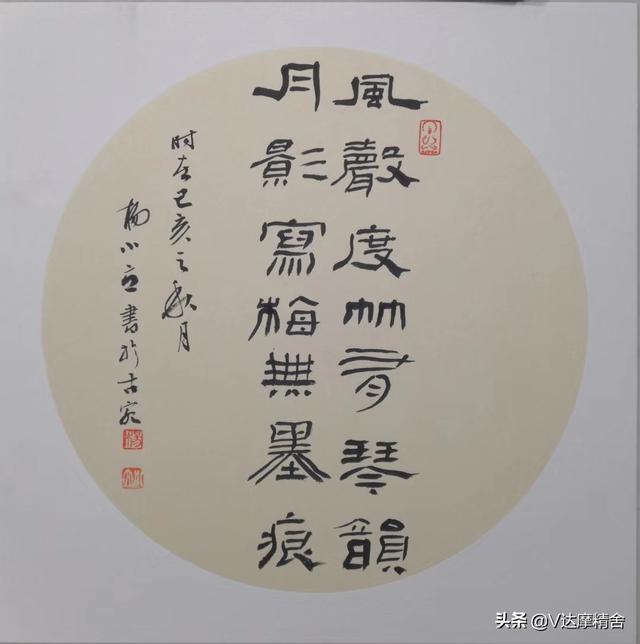 風聲度竹有琴韻
月影寫梅無墨痕
时在己亥之秋月
楊小書於古宛
头条 @V达摩精舍